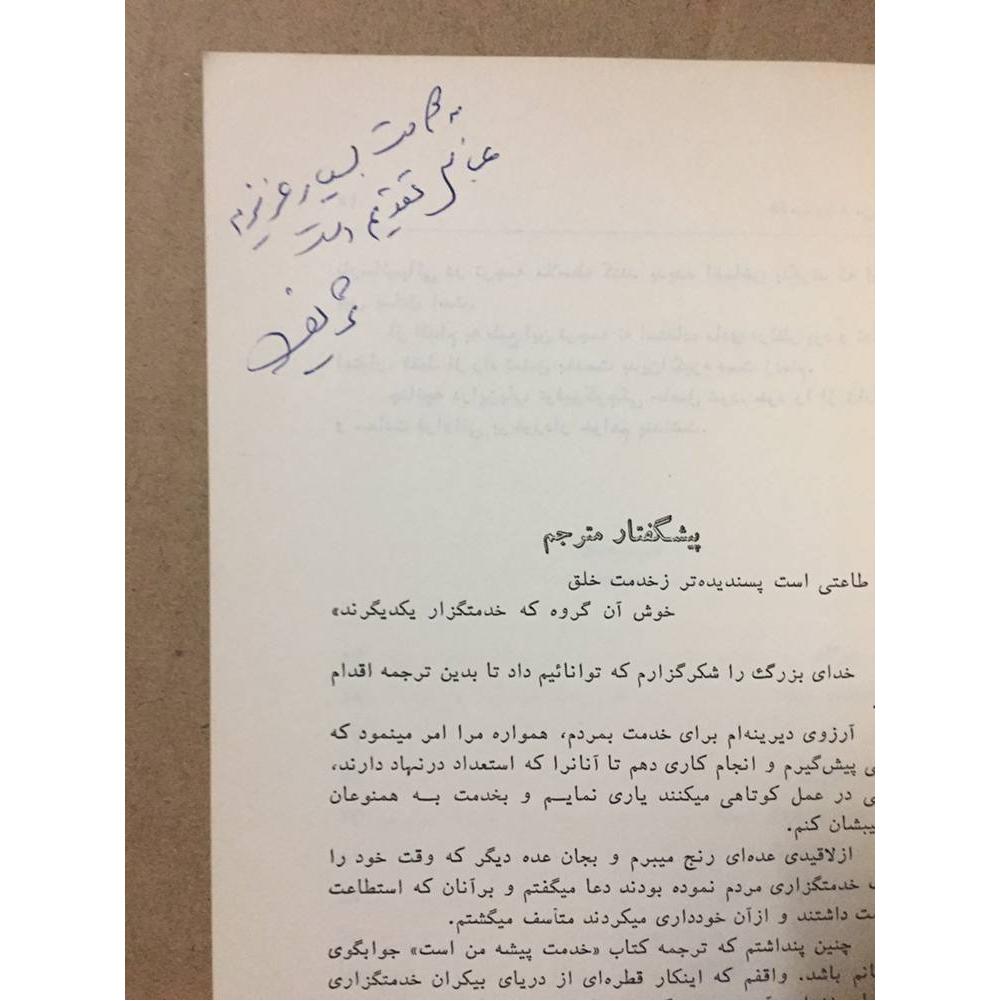 به کامت بسیار عزیزم
عباس تقدیم است
پیشگفتار مترجم
طاعتی است پسندیده‌تر زخدمت خلق
خوش آن گروه که خدمتگزار یکدیگرند»
خدای بزرگ را شکرگزارم که توانائیم داد تا بدین ترجمه اقدام
آرزوی دیرینه‌ام برای خدمت بمردم، همواره مرا امر مینمود که
پیش‌گیرم و انجام کاری دهم تا آنانرا که استعداد درنهاد دارند،
در عمل کوتاهی میکنند یاری نمایم و بخدمت به همنوعان
یبشان کنم.
ازلاقیدی عده‌ای رنج میبرم و بجان عده دیگر که وقت خود را
خدمتگزاری مردم نموده بودند دعا میگفتم و برآنان که استطاعت
داشتند و ازآن خودداری میکردند متأسف میگشتم.
چنین پنداشتم که ترجمه کتاب «خدمت پیشه من است» جوابگوی
انم باشد. واقفم که اینکار قطره‌ای از دریای بیکران خدمتگزاری